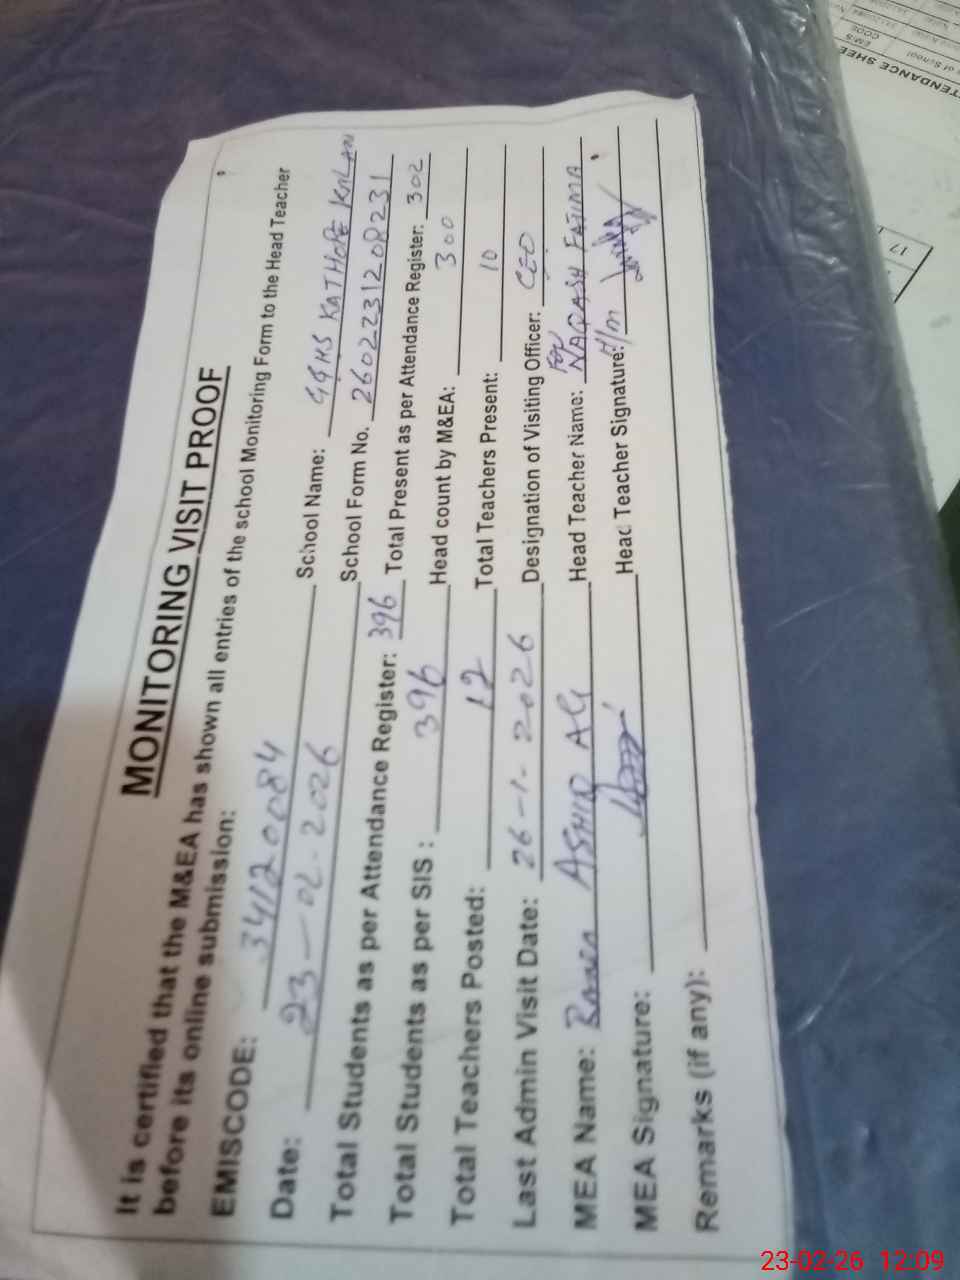 MONITORING VISIT PROOF
It is certified that the M&EA has shown all entries of the school Monitoring Form to the Head Teacher
before its online submission:
EMISCODE: 34120084 School Name: GGHS KATHORE KALAN
Date: 23-02-2026 School Form No. 2602231208231
Total Students as per Attendance Register: 396 Total Present as per Attendance Register: 302
Total Students as per SIS : 396 Head count by M&EA: 300
Total Teachers Posted: 12 Total Teachers Present: 10
Last Admin Visit Date: 26-1-2026 Designation of Visiting Officer: CEO
MEA Name: ASHIQ ALI Head Teacher Name: for NAQASH FATIMA
MEA Signature: Head Teacher Signature: H/m
Remarks (if any):
TTENDANCE SHEE
of School
EMIS
CODE
17
23-02-26 12:09